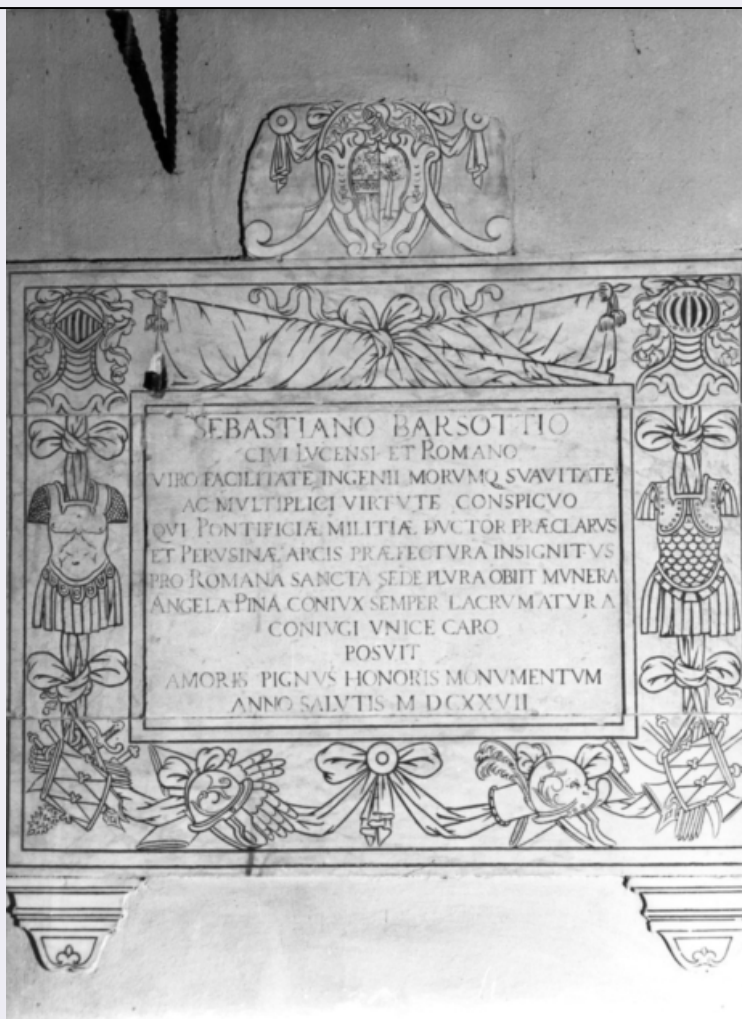 SEBASTIANO BARSOTTIO
CIVI LVCENSI ET ROMANO
VIRO FACILITATE INGENII MORVMQ SVAVITATE
AC MVLTIPLICI VIRTVTE CONSPICVO
QVI PONTIFICIÆ MILITIÆ DVCTOR PRÆCLARVS
ET PERVSINÆ ARCIS PRÆFECTVRA INSIGNITVS
PRO ROMANA SANCTA SEDE PLVRA OBIIT MVNERA
ANGELA PINA CONIVX SEMPER LACRVMATVRA
CONIVGI VNICE CARO
POSVIT
AMORIS PIGNVS HONORIS MONVMENTVM
ANNO SALVTIS M DCXXVII